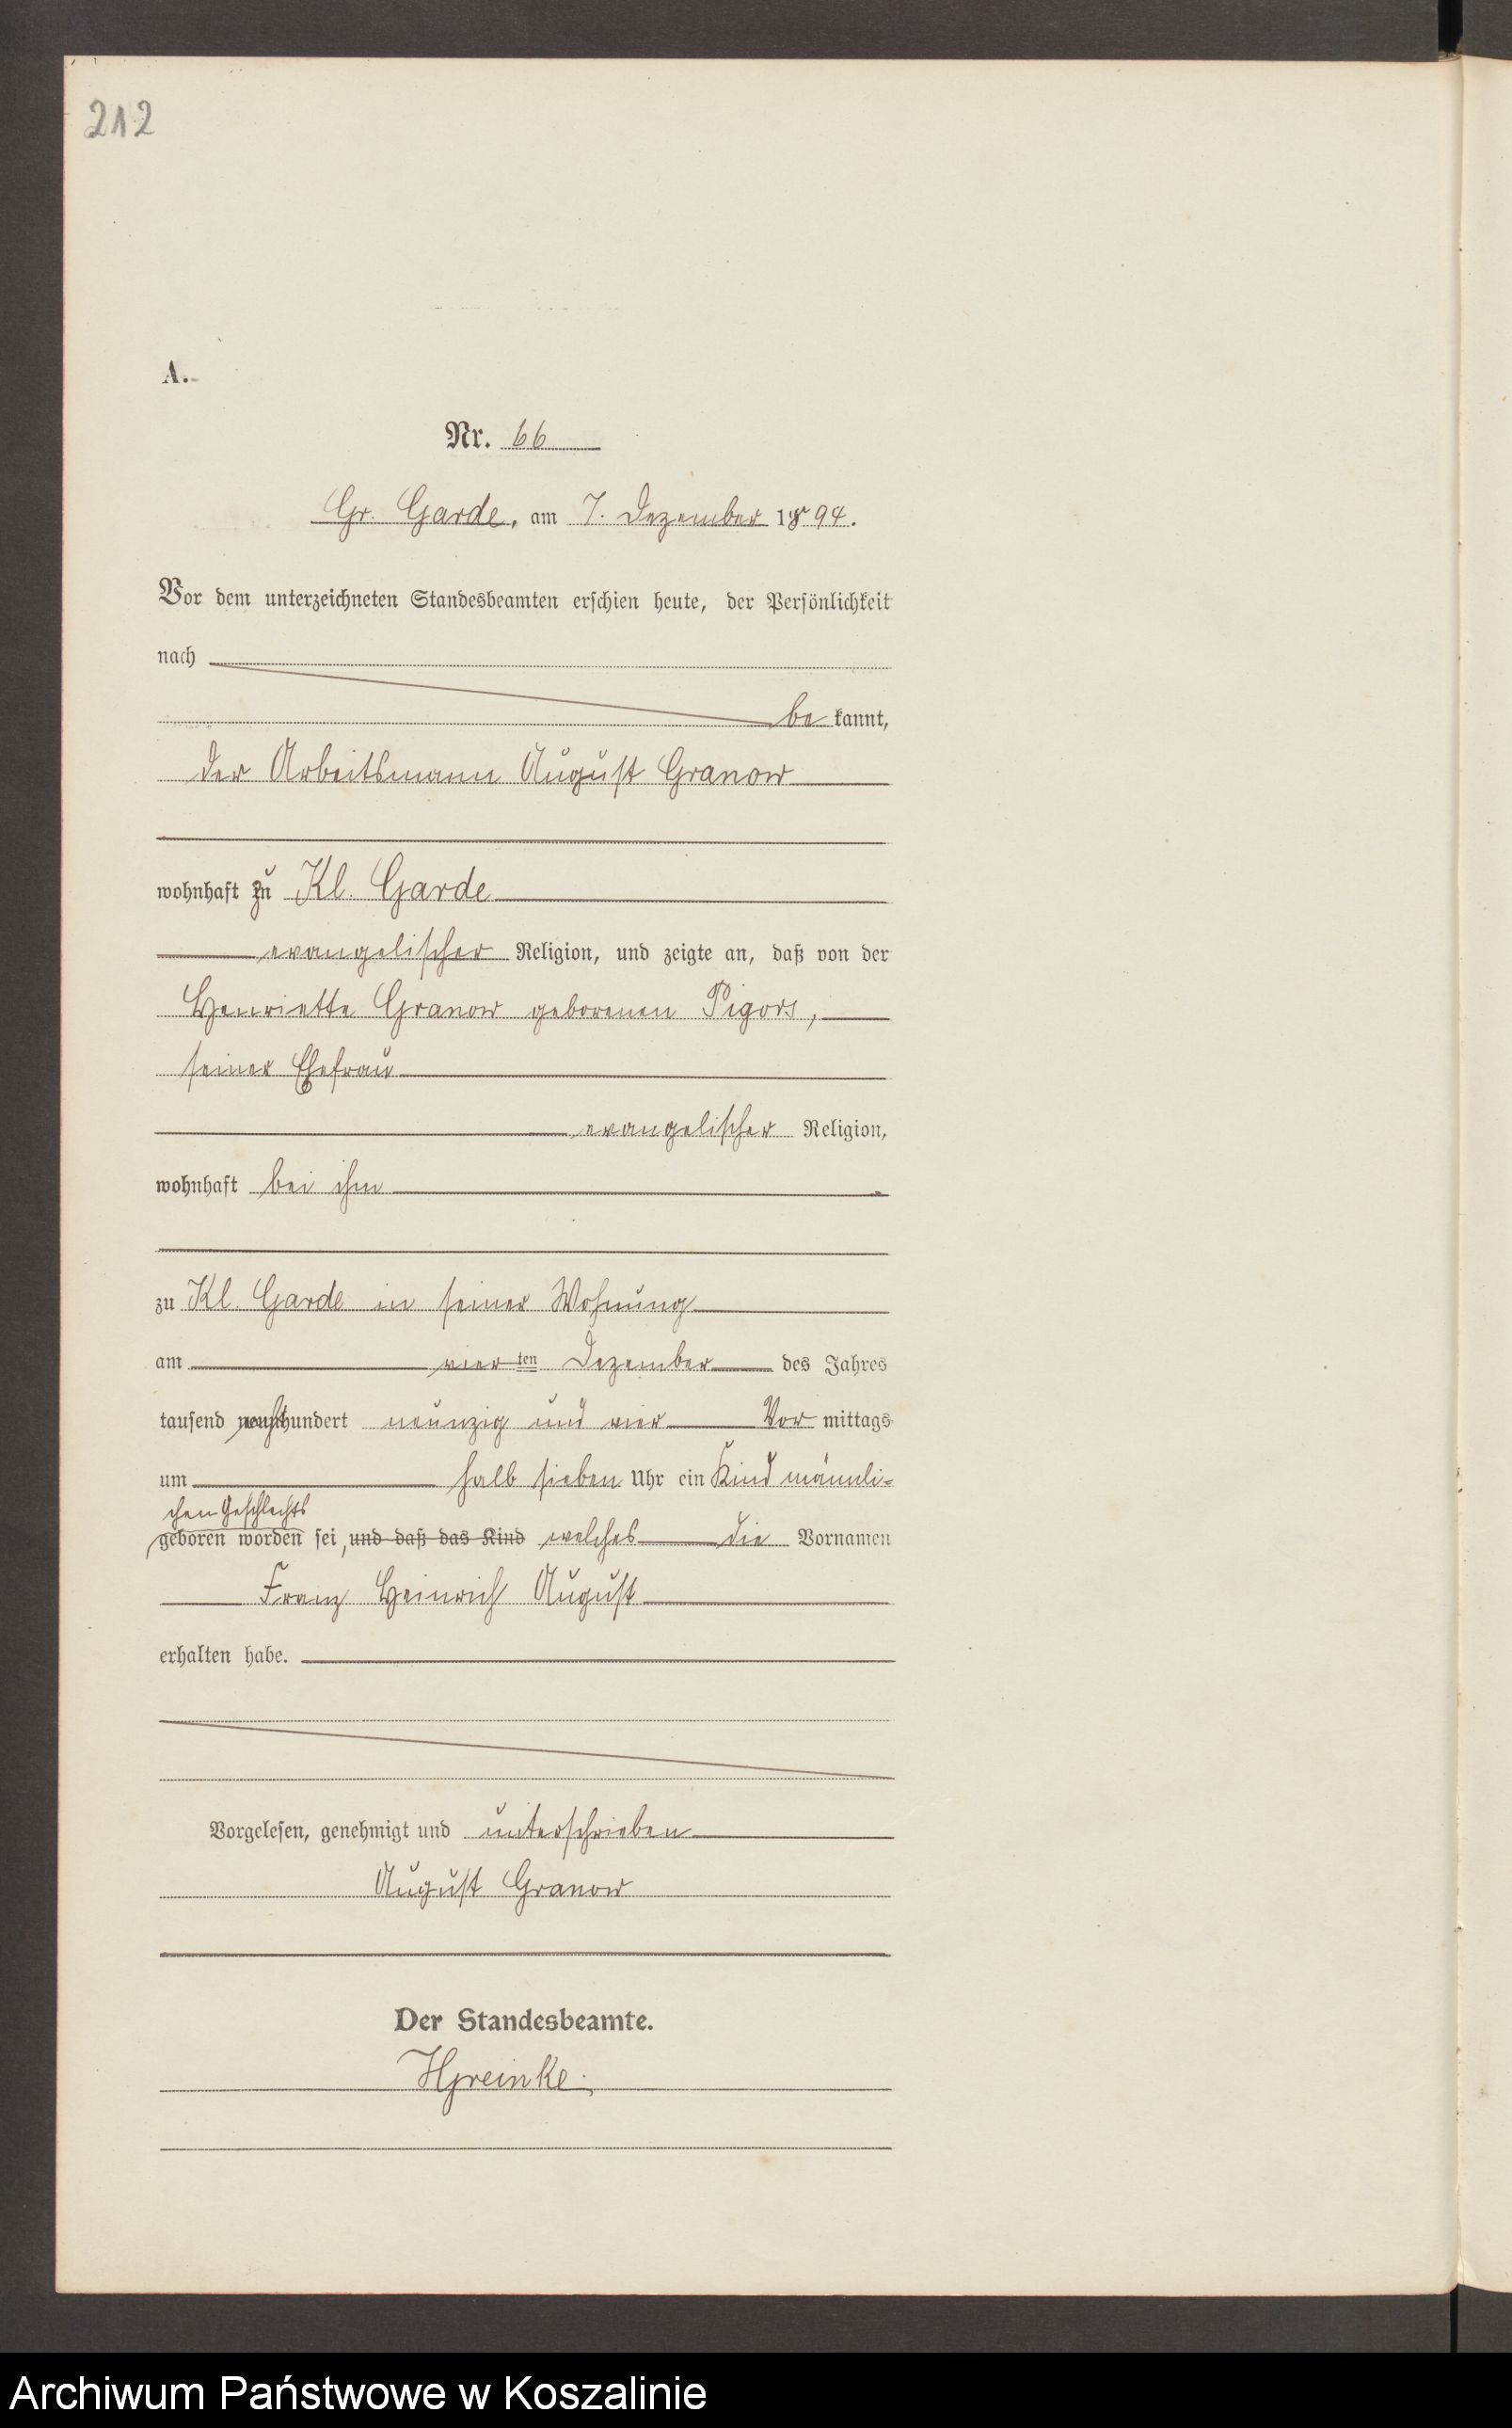 212
A.
Nr. 66
Gr. Garde, am 7. Dezember 1894.
Vor dem unterzeichneten Standesbeamten erschien heute, der Persönlichkeit
nach
be kannt,
der Arbeitsmann August Granow
wohnhaft zu Kl. Garde
evangelischer Religion, und zeigte an, daß von der
Henriette Granow geborenen Pigors,
seiner Ehefrau
evangelischer Religion,
wohnhaft bei ihm
zu Kl. Garde in seiner Wohnung
am vier ten Dezember des Jahres
tausend hundert neunzig und vier Vor mittags
um halb sieben Uhr ein Kind männli=
chen Geschlechts
geboren worden sei, und daß das Kind welches die Vornamen
Franz Heinrich August
erhalten habe.
Vorgelesen, genehmigt und unterschrieben
August Granow
Der Standesbeamte.
Archiwum Państwowe w Koszalinie